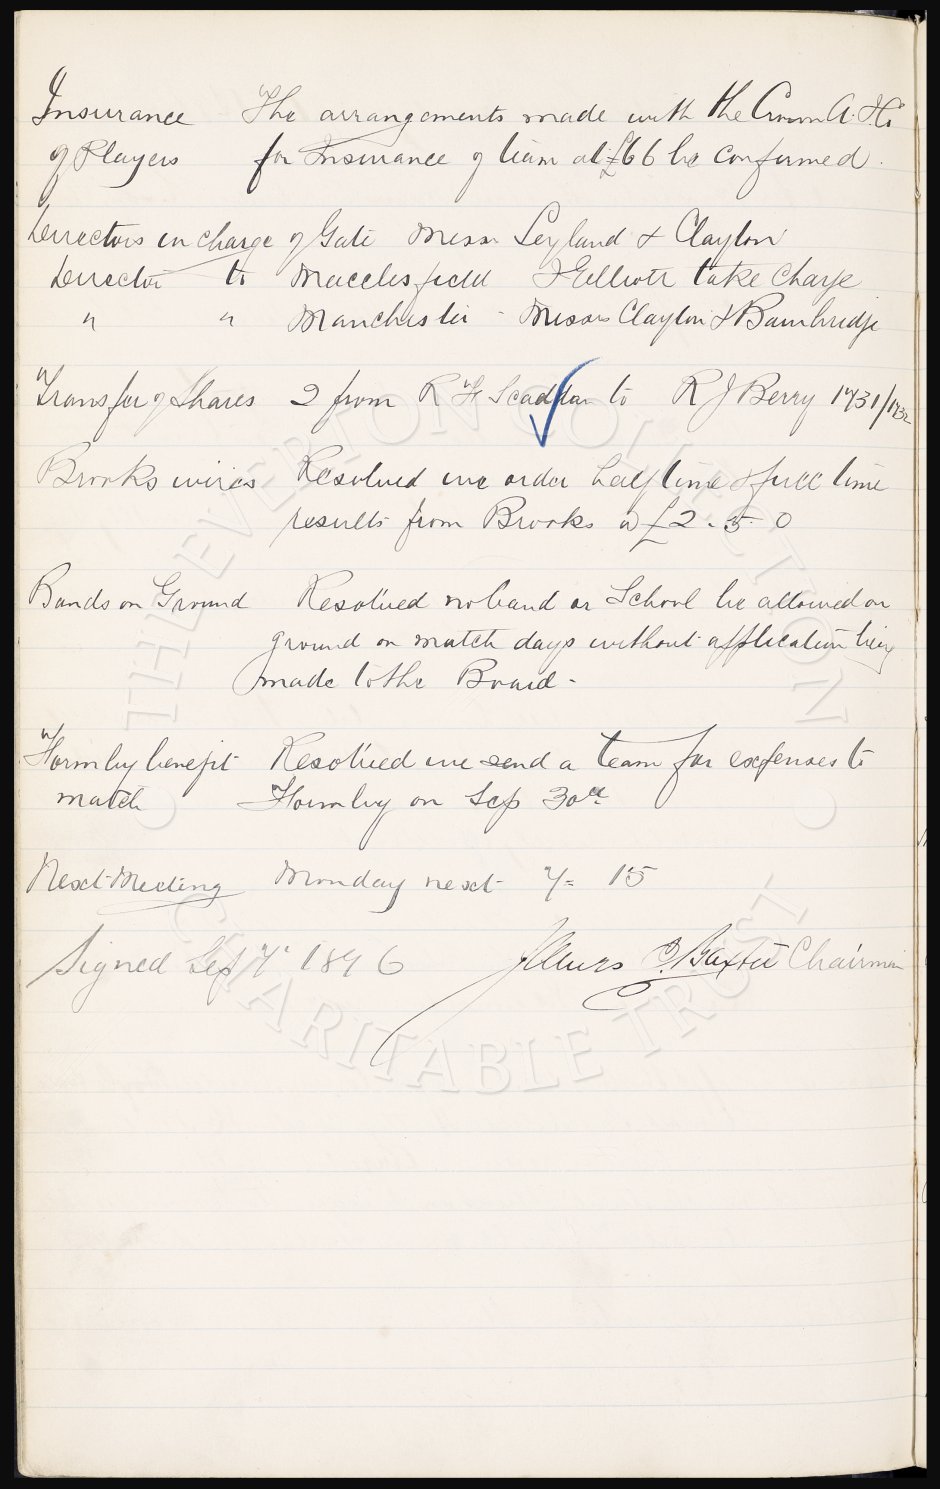 Insurance The arrangements made with the Crown A. &
of Players for Insurance of team at £66 be confirmed.
Directors in charge of Gate Messrs Leyland & Clayton
Director to Macclesfield Elliott take charge
" " Manchester - Messrs Clayton & Bainbridge
Transfer of Shares 2 from R H Scaddan to R J Berry 1731/1732
Brooks wires Resolved we order half time & full time
results from Brooks @ £2.5.0
Bands on Ground Resolved no band or School be allowed on
ground on match days without application being
made to the Board -
Formby benefit Resolved we send a team for expenses to
match Formby on Sep 30th
Next Meeting Monday next 7= 15
Signed Sep 7th 1896 James C. Baxter Chairman
THE EVERTON COLLECTION
CHARITABLE TRUST